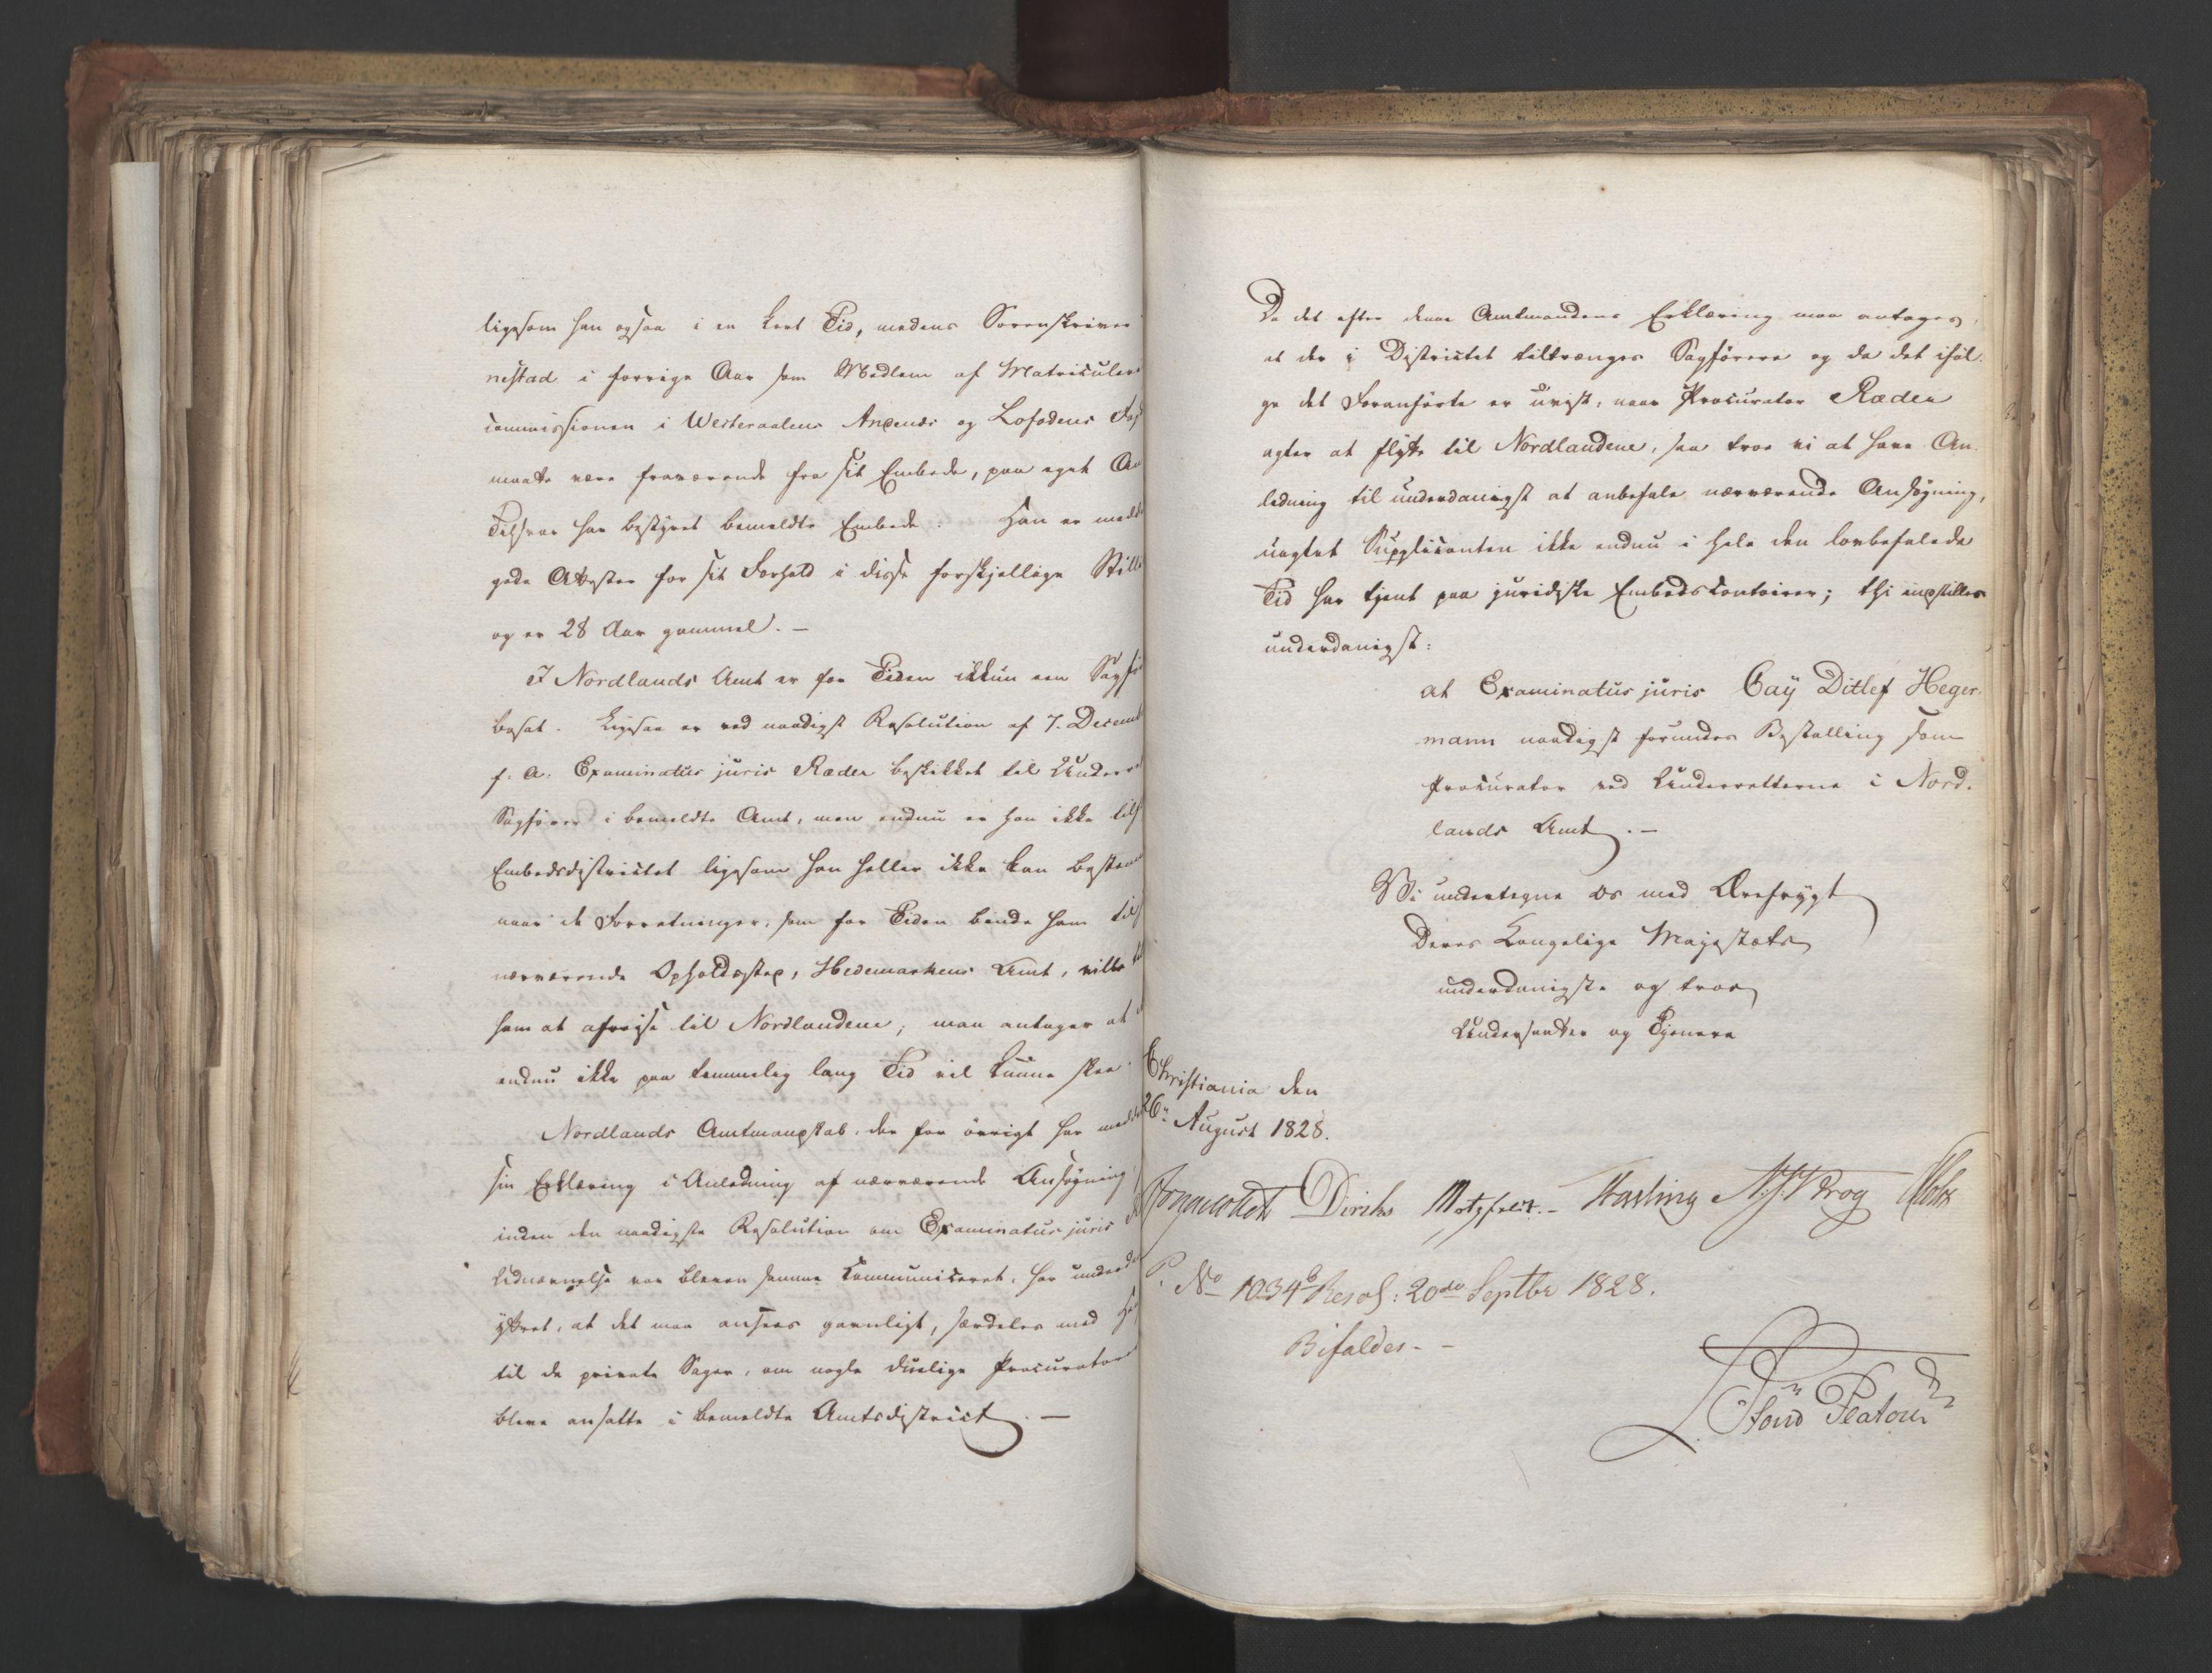 ligesom han ogsaa i en kort Tid, medens Sorenskriver
nestad i forrige Aar som Medlem af Matriculerings
commissionen i Westeraalens Andenæs og Lofodens
maatte være fraværende fra sit Embede, paa eget
Tilsvar har bestyret bemeldte Embede. Han er
gode Attester for sit Forhold i disse forskjellige
og er 28 Aar gammel. –
I Nordlands Amt er for Tiden ikkun een
bosat. Ligesaa er ved naadigst Resolution af 7. Decemb
f: A: Examinatus juris Ræder beskikket til
Sagfører i bemeldte Amt, men endnu er han ikke
Embedsdistrictet ligesom han heller ikke kan
naar de Forretninger, som for Tiden binde ham
nærværende Opholdssted, Hedemarkens Amt, ville
ham at afreise til Nordlandene; man antager at
endnu ikke paa temmelig lang Tid vil kunne skee.
Nordlands Amtmandskab, der for øvrigt har
sin Erklæring i Anledning af nærværende Ansøgning
inden den naadigste Resolution om Examinatus juris
Udnævnelse var bleven samme communiceret, har
yttret, at det maa ansees gavnligt, særdeles med
til de private Sager, om nogle duelige Procuratorer
bleve ansatte i bemeldte Amtsdistrict. –
Da det efter denne Amtmandens Erklæring maa antages,
at der i Districtet tiltrænges Sagførere og da det iføl-
ge det Foranførte er uvist, naar Procurator Ræder
agter at flytte til Nordlandene, saa troe vi at have An-
ledning til underdanigst at anbefale nærværende Ansøgning,
uagtet Supplicanten ikke endnu i hele den lovbefalede
Tid har tjent paa juridiske Embedscontoirer; thi indstilles
underdanigst:
at Examinatus juris Cay Ditlef Heger-
mann naadigst forundes Bestalling som
Procurator ved Underretterne i Nord-
lands Amt. –
Vi undertegne os med Ærefrygt
Deres Kongelige Majestæts
underdanigste og troe
Undersaatter og Tjenere
Christiania den
26de August 1828.
Diriks Motzfeldt. – Fasting Krog Holst
P. No 1034 b Resol: 20de Septbr 1828.
Bifaldes. –
Platou